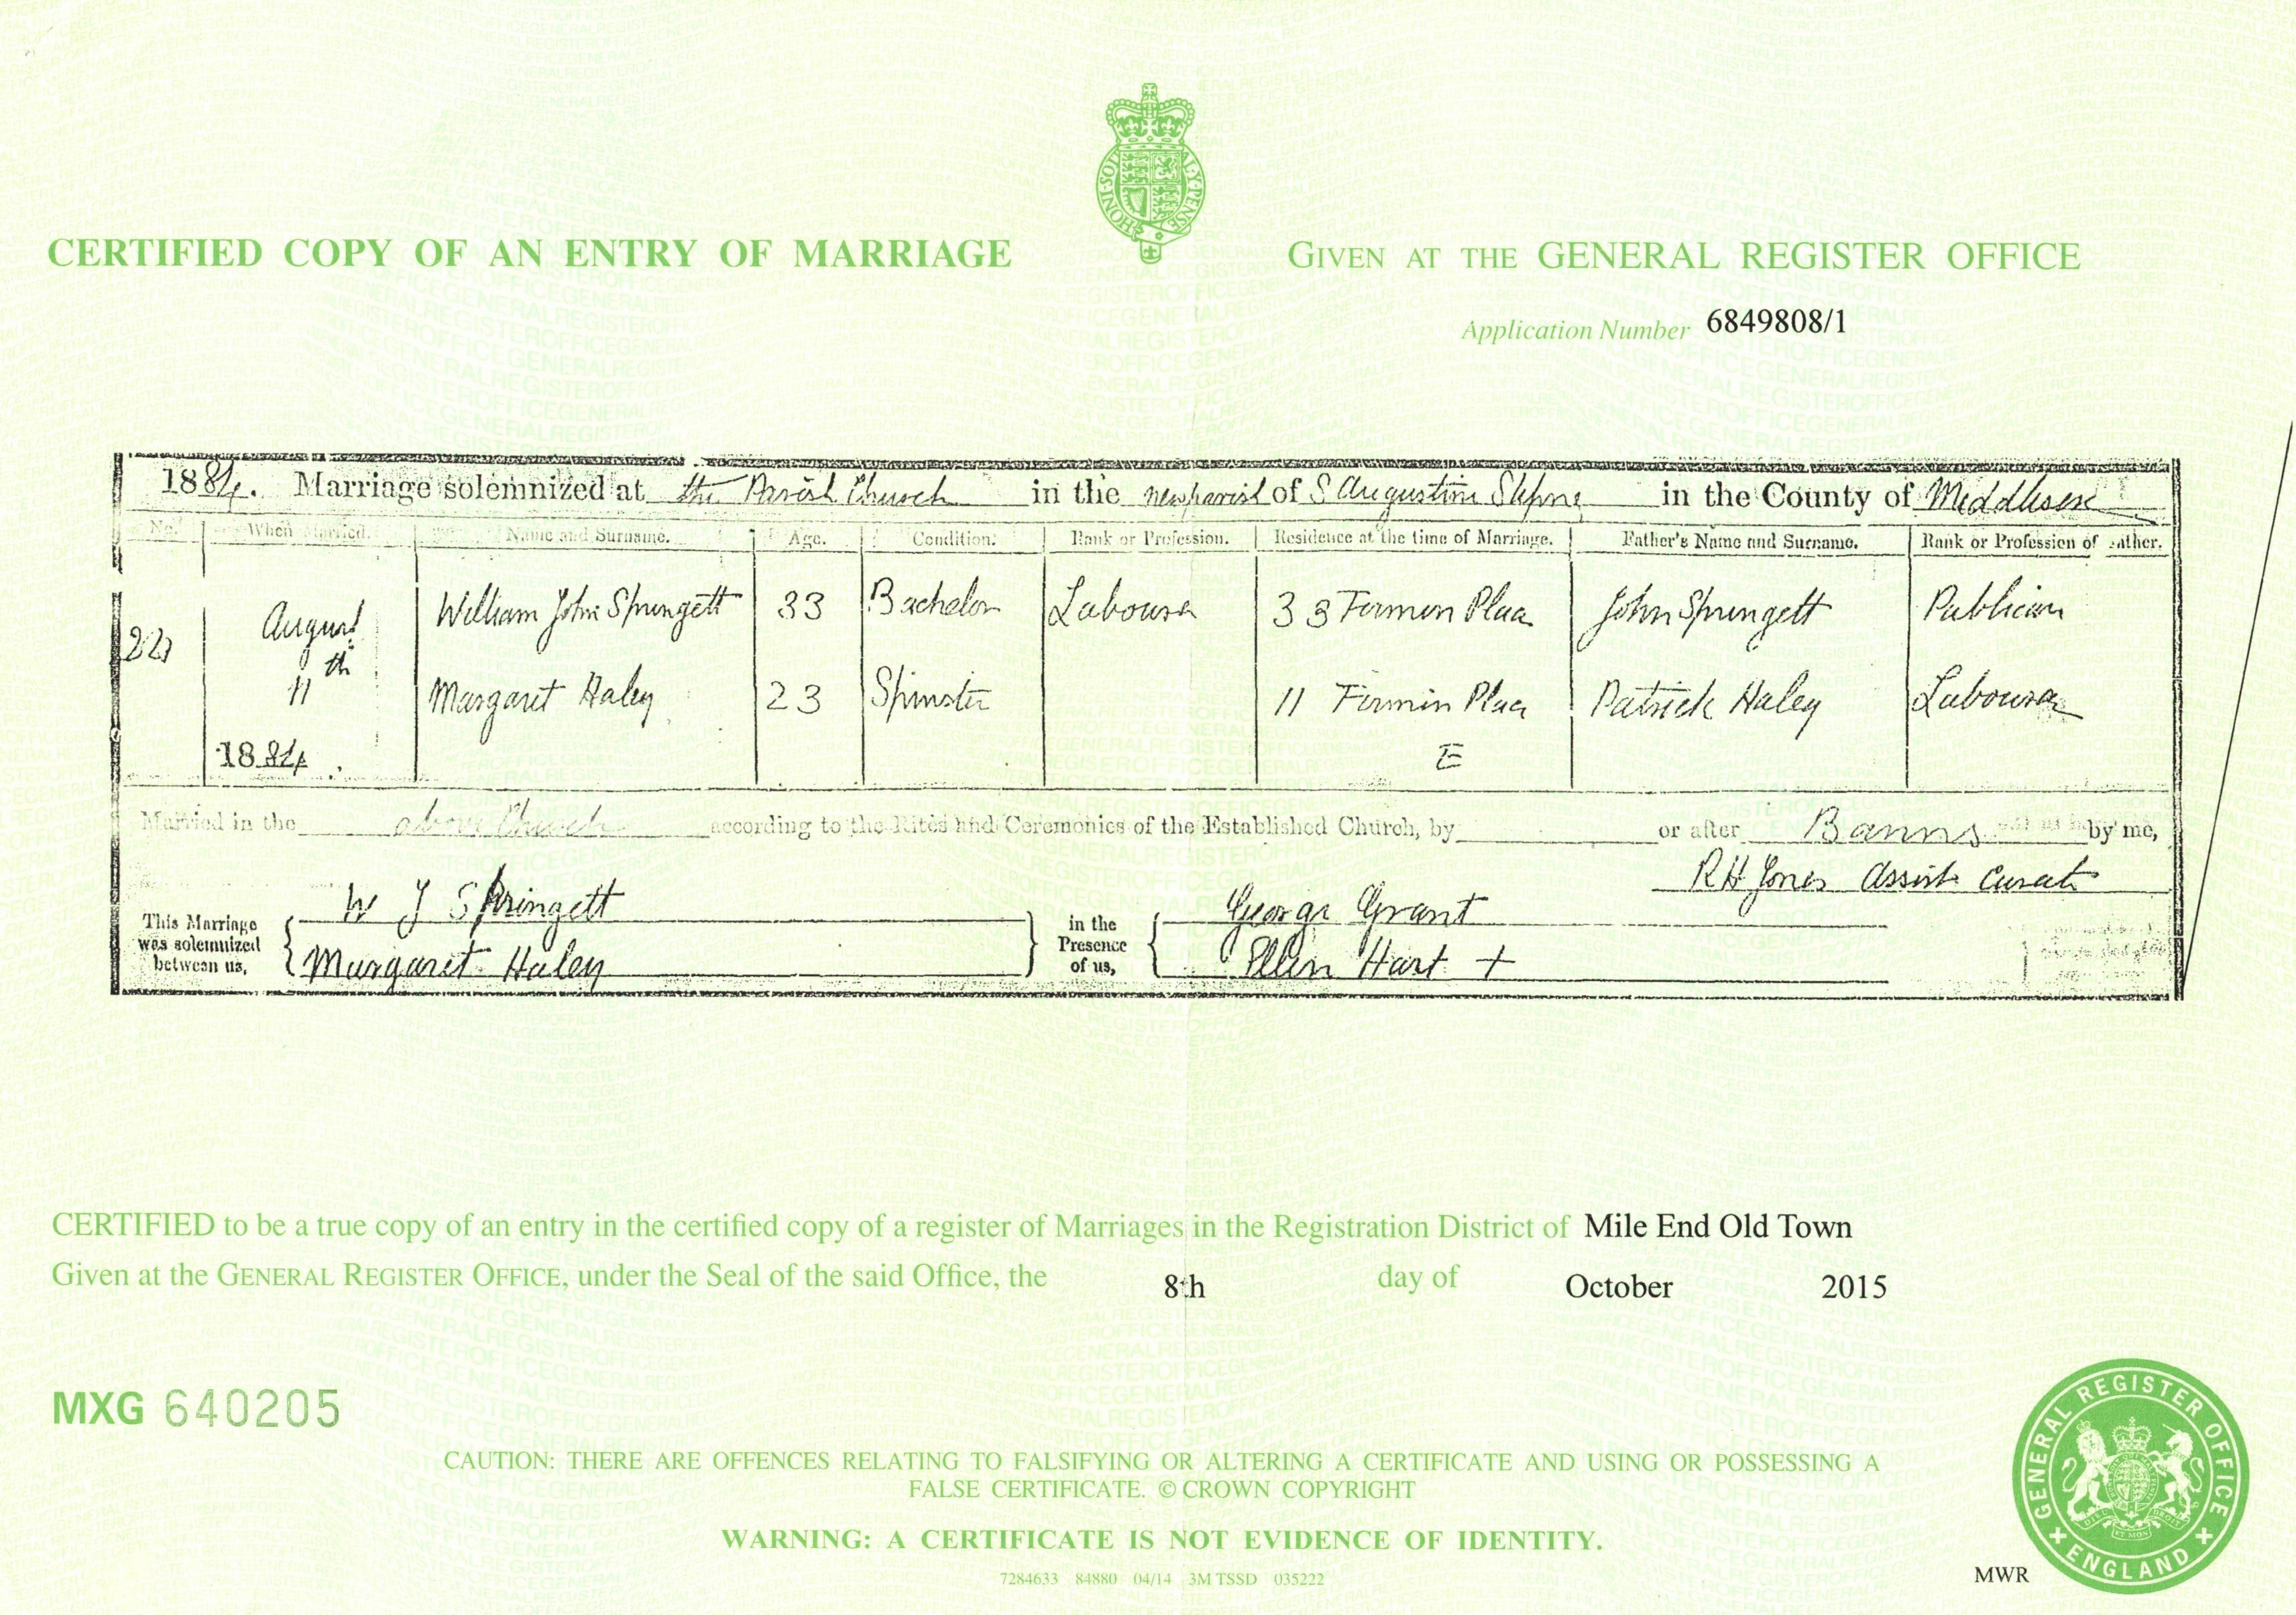 HONI·SOIT Y·PENSE
CERTIFIED COPY OF AN ENTRY OF MARRIAGE
GIVEN AT THE GENERAL REGISTER OFFICE
Application Number 6849808/1
1884. Marriage solemnized at the Parish Church in the new parish of S Augustine Stepney in the County of Middlesex
No. When Married. Name and Surname. Age. Condition. Rank or Profession. Residence at the time of Marriage. Father's Name and Surname. Rank or Profession of Father.
William John Springett 33 Bachelor Labourer 33 Firmin Place John Springett Publican
August
11th
Margaret Haley 23 Spinster 11 Firmin Place Patrick Haley Labourer
1884 E
Married in the above Church according to the Rites and Ceremonies of the Established Church, by or after Banns by me,
R H Jones Assist Curate
This Marriage was solemnized between us, W J Springett in the Presence of us, George Grant
Margaret Haley Ellen Hart +
CERTIFIED to be a true copy of an entry in the certified copy of a register of Marriages in the Registration District of Mile End Old Town
Given at the GENERAL REGISTER OFFICE, under the Seal of the said Office, the 8th day of October 2015
MXG 640205
CAUTION: THERE ARE OFFENCES RELATING TO FALSIFYING OR ALTERING A CERTIFICATE AND USING OR POSSESSING A
FALSE CERTIFICATE. © CROWN COPYRIGHT
WARNING: A CERTIFICATE IS NOT EVIDENCE OF IDENTITY.
7284633 84880 04/14 3M TSSD 035222
MWR
GENERAL REGISTER OFFICE
ENGLAND